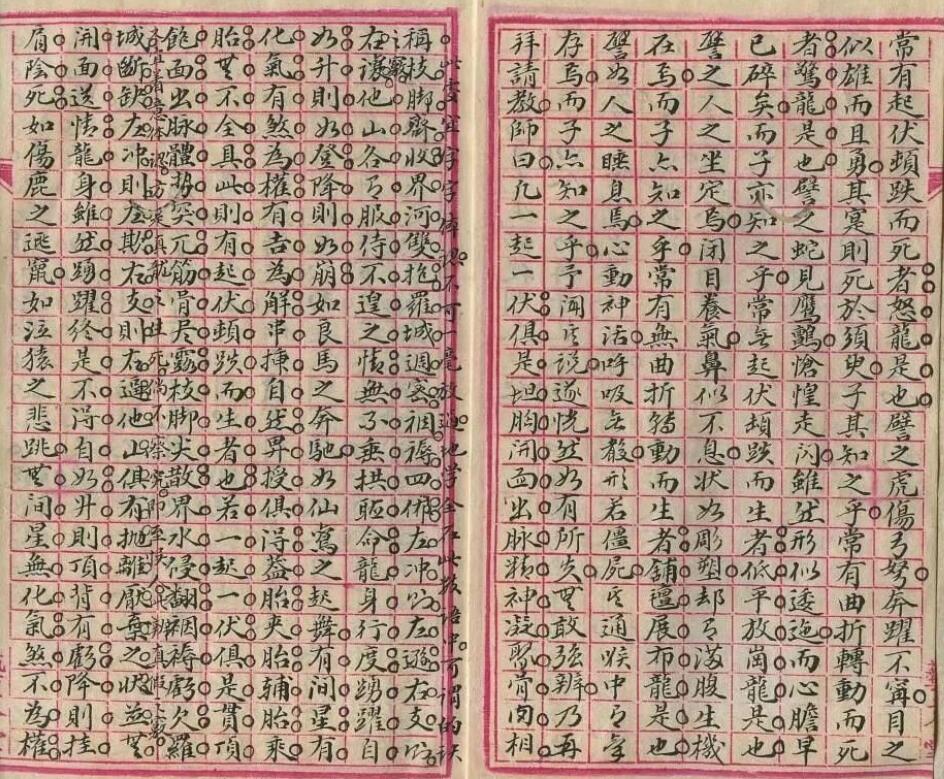 常有起伏頓跌而死者怒龍是也譬之虎傷弓弩奔躍不甯目之
似雄而且勇其寔則死於須臾子其知之乎常有曲折轉動而死
者驚龍是也譬之蛇見鷹鸇愴惶走闪雖然形似逶迤而心膽早
已碎矣而子亦知之乎常无起伏頓跌而生者低平放崗龍是也
譬之人之坐定焉闭目養氣鼻似不息状如彫塑却有滿腹生機
在焉而子亦知之乎常有無曲折轉動而生者舖氊展布龍是也
譬如人之睡息焉心動神活呼吸无聲形若僵屍通喉中有氣
存焉而子亦知之乎予闻其说遂恍然如有所失無敢强辨乃再
拜請教師曰凡一起一伏俱是坦胸開面出脉精神凝聚骨肉相
此處宜字字不可一毫放過地学全在此数語中可謂的訣
稱枝脚齊收界河雙抱羅城週密裀褥四備左冲左遜右支
在他山各有服侍不遑之情無不垂拱聽命龍身行度踴躍自
如升則如登降則如崩如良馬之奔馳如仙鸞之起舞有間星有
化氣有煞為權有吉為解串揀自然畀授俱得益胎夾胎輔胎乘
胎無不全具此則有起伏頓跌而生者也若一起一伏俱是貫頂
飽面出脉體勢突兀筋骨尽露枝脚尖散界水侵翻裀褥虧欠羅
城斷缺左冲則左欺右支則右逼他山俱有抛離厭棄之状並無
開面送情龍身雖然踴躍終是不得自如升則頂背有虧降則挂
肩陰死如傷鹿之逃竄如泣猿之悲跳無間星無化氣煞不為權